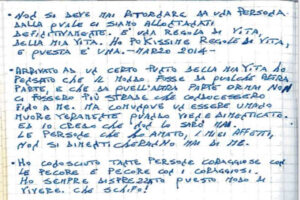 • NON SI DEVE MAI RITORNARE DA UNA PERSONA
DALLA QUALE CI SIAMO ALLONTANATI
DEFINITIVAMENTE. E' UNA REGOLA DI VITA,
DELLA MIA VITA. HO POCHISSIME REGOLE DI VITA,
E QUESTA E' UNA. - MARZO 2014 -
• ARRIVATO AD UN CERTO PUNTO DELLA MIA VITA HO
PENSATO CHE IL MONDO FOSSE DA QUALCHE ALTRA
PARTE, E CHE DA QUELL'ALTRA PARTE ORMAI NON
CI FOSSERO PIÙ STRADE CHE CONDUCESSERO
FINO A ME. MA COMUNQUE UN ESSERE UMANO
MUORE VERAMENTE QUANDO VIENE DIMENTICATO.
ED IO CREDO CHE NON LO SARÒ MAI.
LE PERSONE CHE HO AMATO, I MIEI AFFETTI,
NON SI DIMENTICHERANNO MAI DI ME.
• HO CONOSCIUTO TANTE PERSONE CORAGGIOSE CON
LE PECORE E PECORE CON I CORAGGIOSI.
HO SEMPRE DISPREZZATO QUESTO MODO DI
VIVERE. CHE SCHIFO!